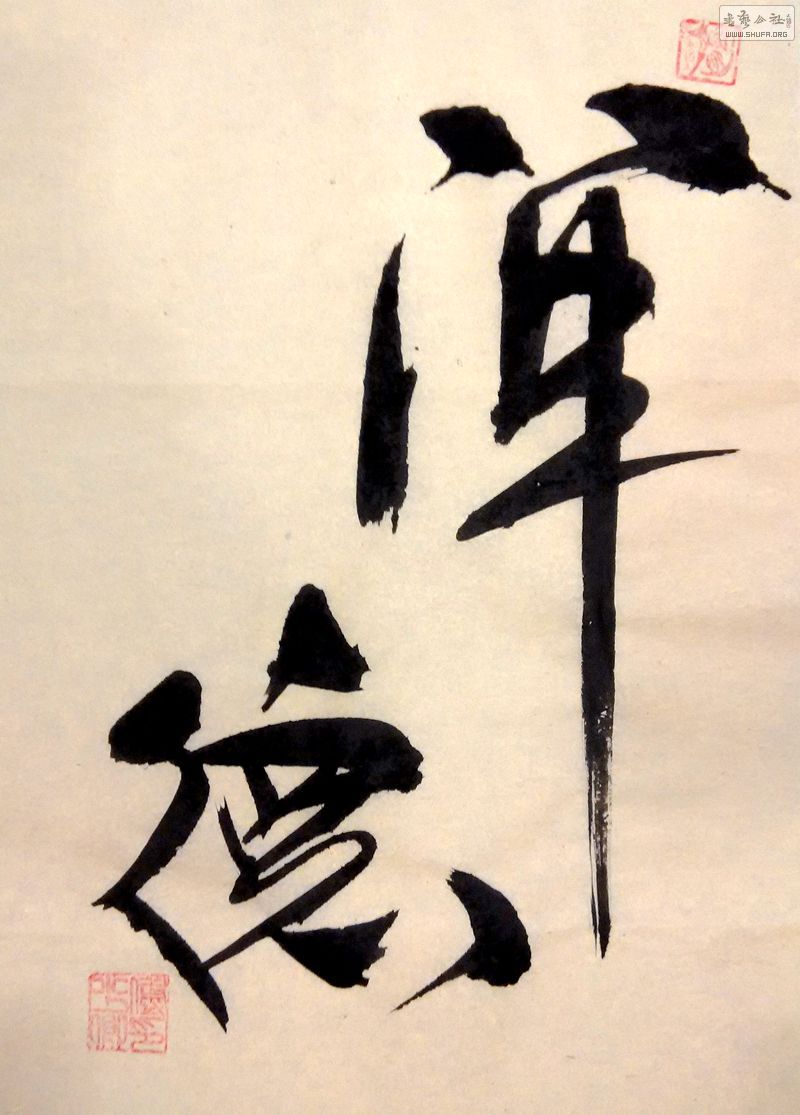 書藝公社
WWW.SHUFA.ORG
渾
德